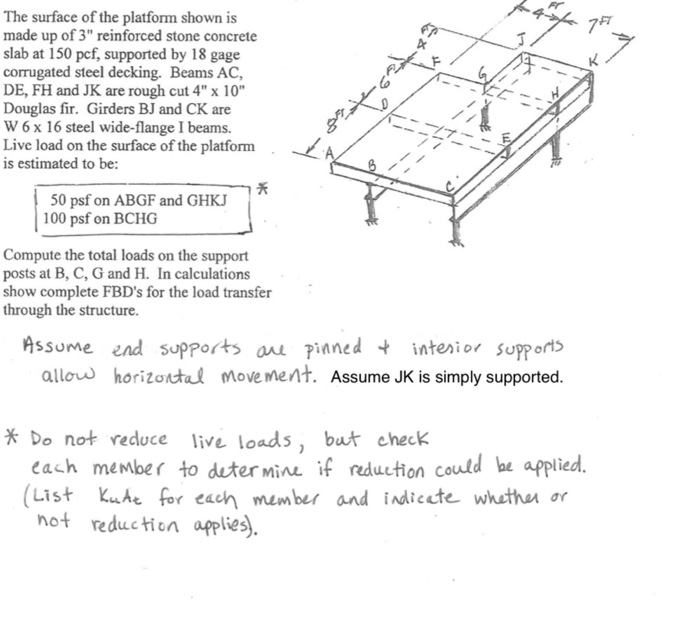 The surface of the platform shown is
made up of 3" reinforced stone concrete
slab at 150 pcf, supported by 18 gage
corrugated steel decking. Beams AC,
DE, FH and JK are rough cut 4" x 10"
Douglas fir. Girders BJ and CK are
W 6 x 16 steel wide-flange I beams.
Live load on the surface of the platform
is estimated to be:
50 psf on ABGF and GHKJ *
100 psf on BCHG
Compute the total loads on the support
posts at B, C, G and H. In calculations
show complete FBD's for the load transfer
through the structure.
4 FT
7 FT
4 FT
6 FT
8 FT
J
K
F
G
H
D
E
A
B
C
Assume end supports are pinned + interior supports
allow horizontal movement. Assume JK is simply supported.
* Do not reduce live loads, but check
each member to determine if reduction could be applied.
(List KLLAt for each member and indicate whether or
not reduction applies).